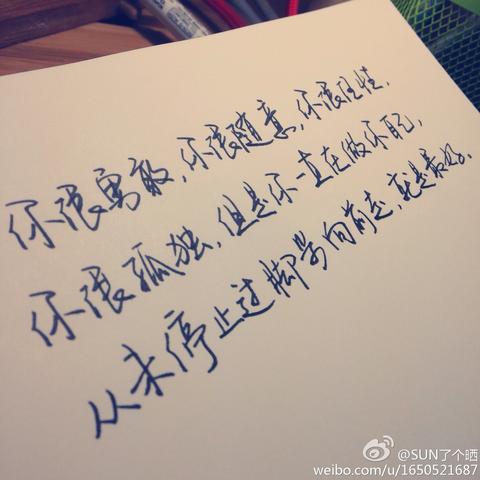 你很勇敢,你很随意,你很理性,
你很孤独,但是你一直在做你自己,
从未停止过脚步向前走,就是最好.
@SUN了个晒
weibo.com/u/1650521687